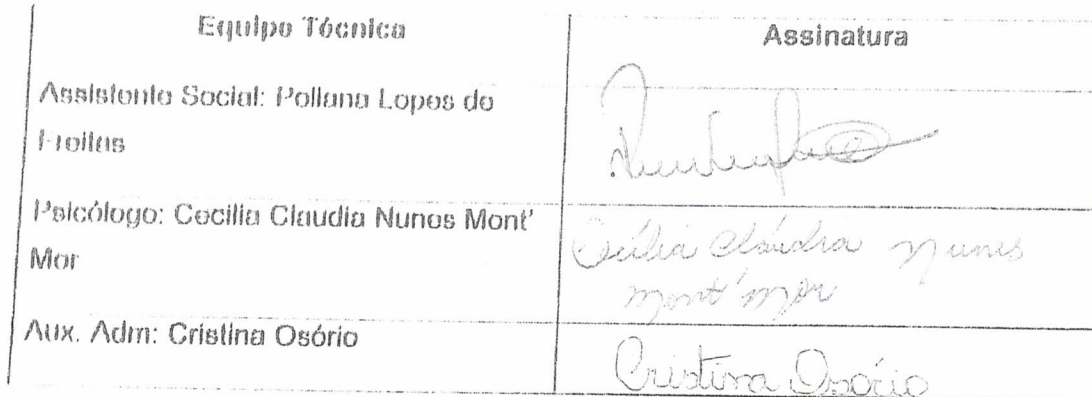 Equipe Técnica
Assinatura
Assistente Social: Pollana Lopes de
Freitas
Psicólogo: Cecilia Claudia Nunes Mont'
Mor
Cecília Cláudia Nunes
Mont'Mór
Aux. Adm: Cristina Osório
Cristina Osório